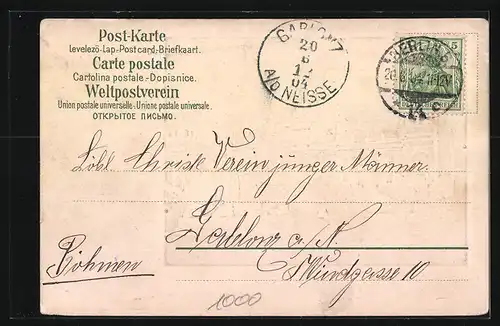 Post-Karte
Levelező-Lap-Postcard-Briefkaart.
Carte postale
Cartolina postale-Dopisnice.
Weltpostverein
Union postale universelle.-Unione postale universale.
ОТКРЫТОЕ ПИСЬМО.
GABLONZ
20
6
12
04
A/D NEISSE
5
BERLIN
Löbl. Christl Verein junger Männer.
Gablonz a/N.
Böhmen
Mündgasse 10
1000